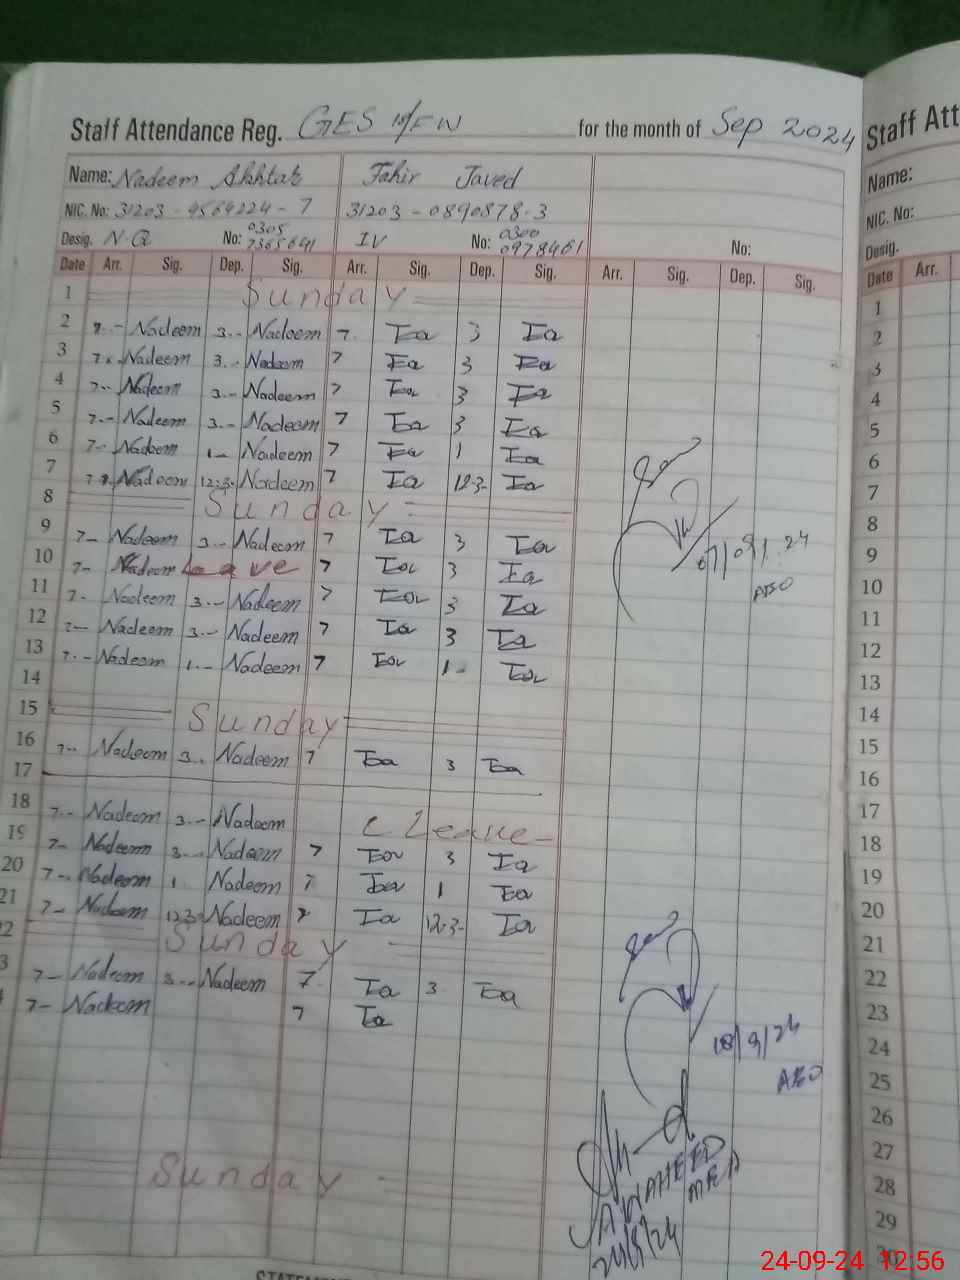 Staff Attendance Reg. GES M/FW for the month of Sep 2024
Name: Nadeem Akhtar Tahir Javed
NIC. No: 31203-9564224-7 31203-0890878-3
Desig. N.Q No: 0305 7365641 IV No: 0300 0978461 No:
Date Arr. Sig. Dep. Sig. Arr. Sig. Dep. Sig. Arr. Sig. Dep. Sig.
1 Sunday
2 7-- Nadeem 3-- Nadeem 7 3
3 7-- Nadeem 3-- Nadeem 7 3
4 7-- Nadeem 3-- Nadeem 7 3
5 7-- Nadeem 3-- Nadeem 7 3
6 7-- Nadeem 1-- Nadeem 7 1
7 7-- Nadeem 12:30 Nadeem 7 12-3-
8 Sunday
9 7- Nadeem 3-- Nadeem 7 3
10 7- Nadeem Leave 7 3
11 7- Nadeem 3-- Nadeem 7 3
12 7-- Nadeem 3-- Nadeem 7 3
13 7-- Nadeem 1-- Nadeem 7 1-
14
15 Sunday
16 7-- Nadeem 3-- Nadeem 7 3
17
18 7-- Nadeem 3-- Nadeem C Leave-
19 7- Nadeem 3-- Nadeem 7 3
20 7- Nadeem 1 Nadeem 7 1
21 7- Nadeem 12:30 Nadeem 7 12-3-
2 Sunday
3 7- Nadeem 3-- Nadeem 7 3
7- Nadeem 7
Sunday
07/09/24
AEO
18/9/24
AEO
A WAHEED
MEA
24/9/24
STATEMEN
Staff Att
Name:
NIC. No:
Desig.
Date Arr.
1
2
3
4
5
6
7
8
9
10
11
12
13
14
15
16
17
18
19
20
21
22
23
24
25
26
27
28
29
30
24-09-24 12:56